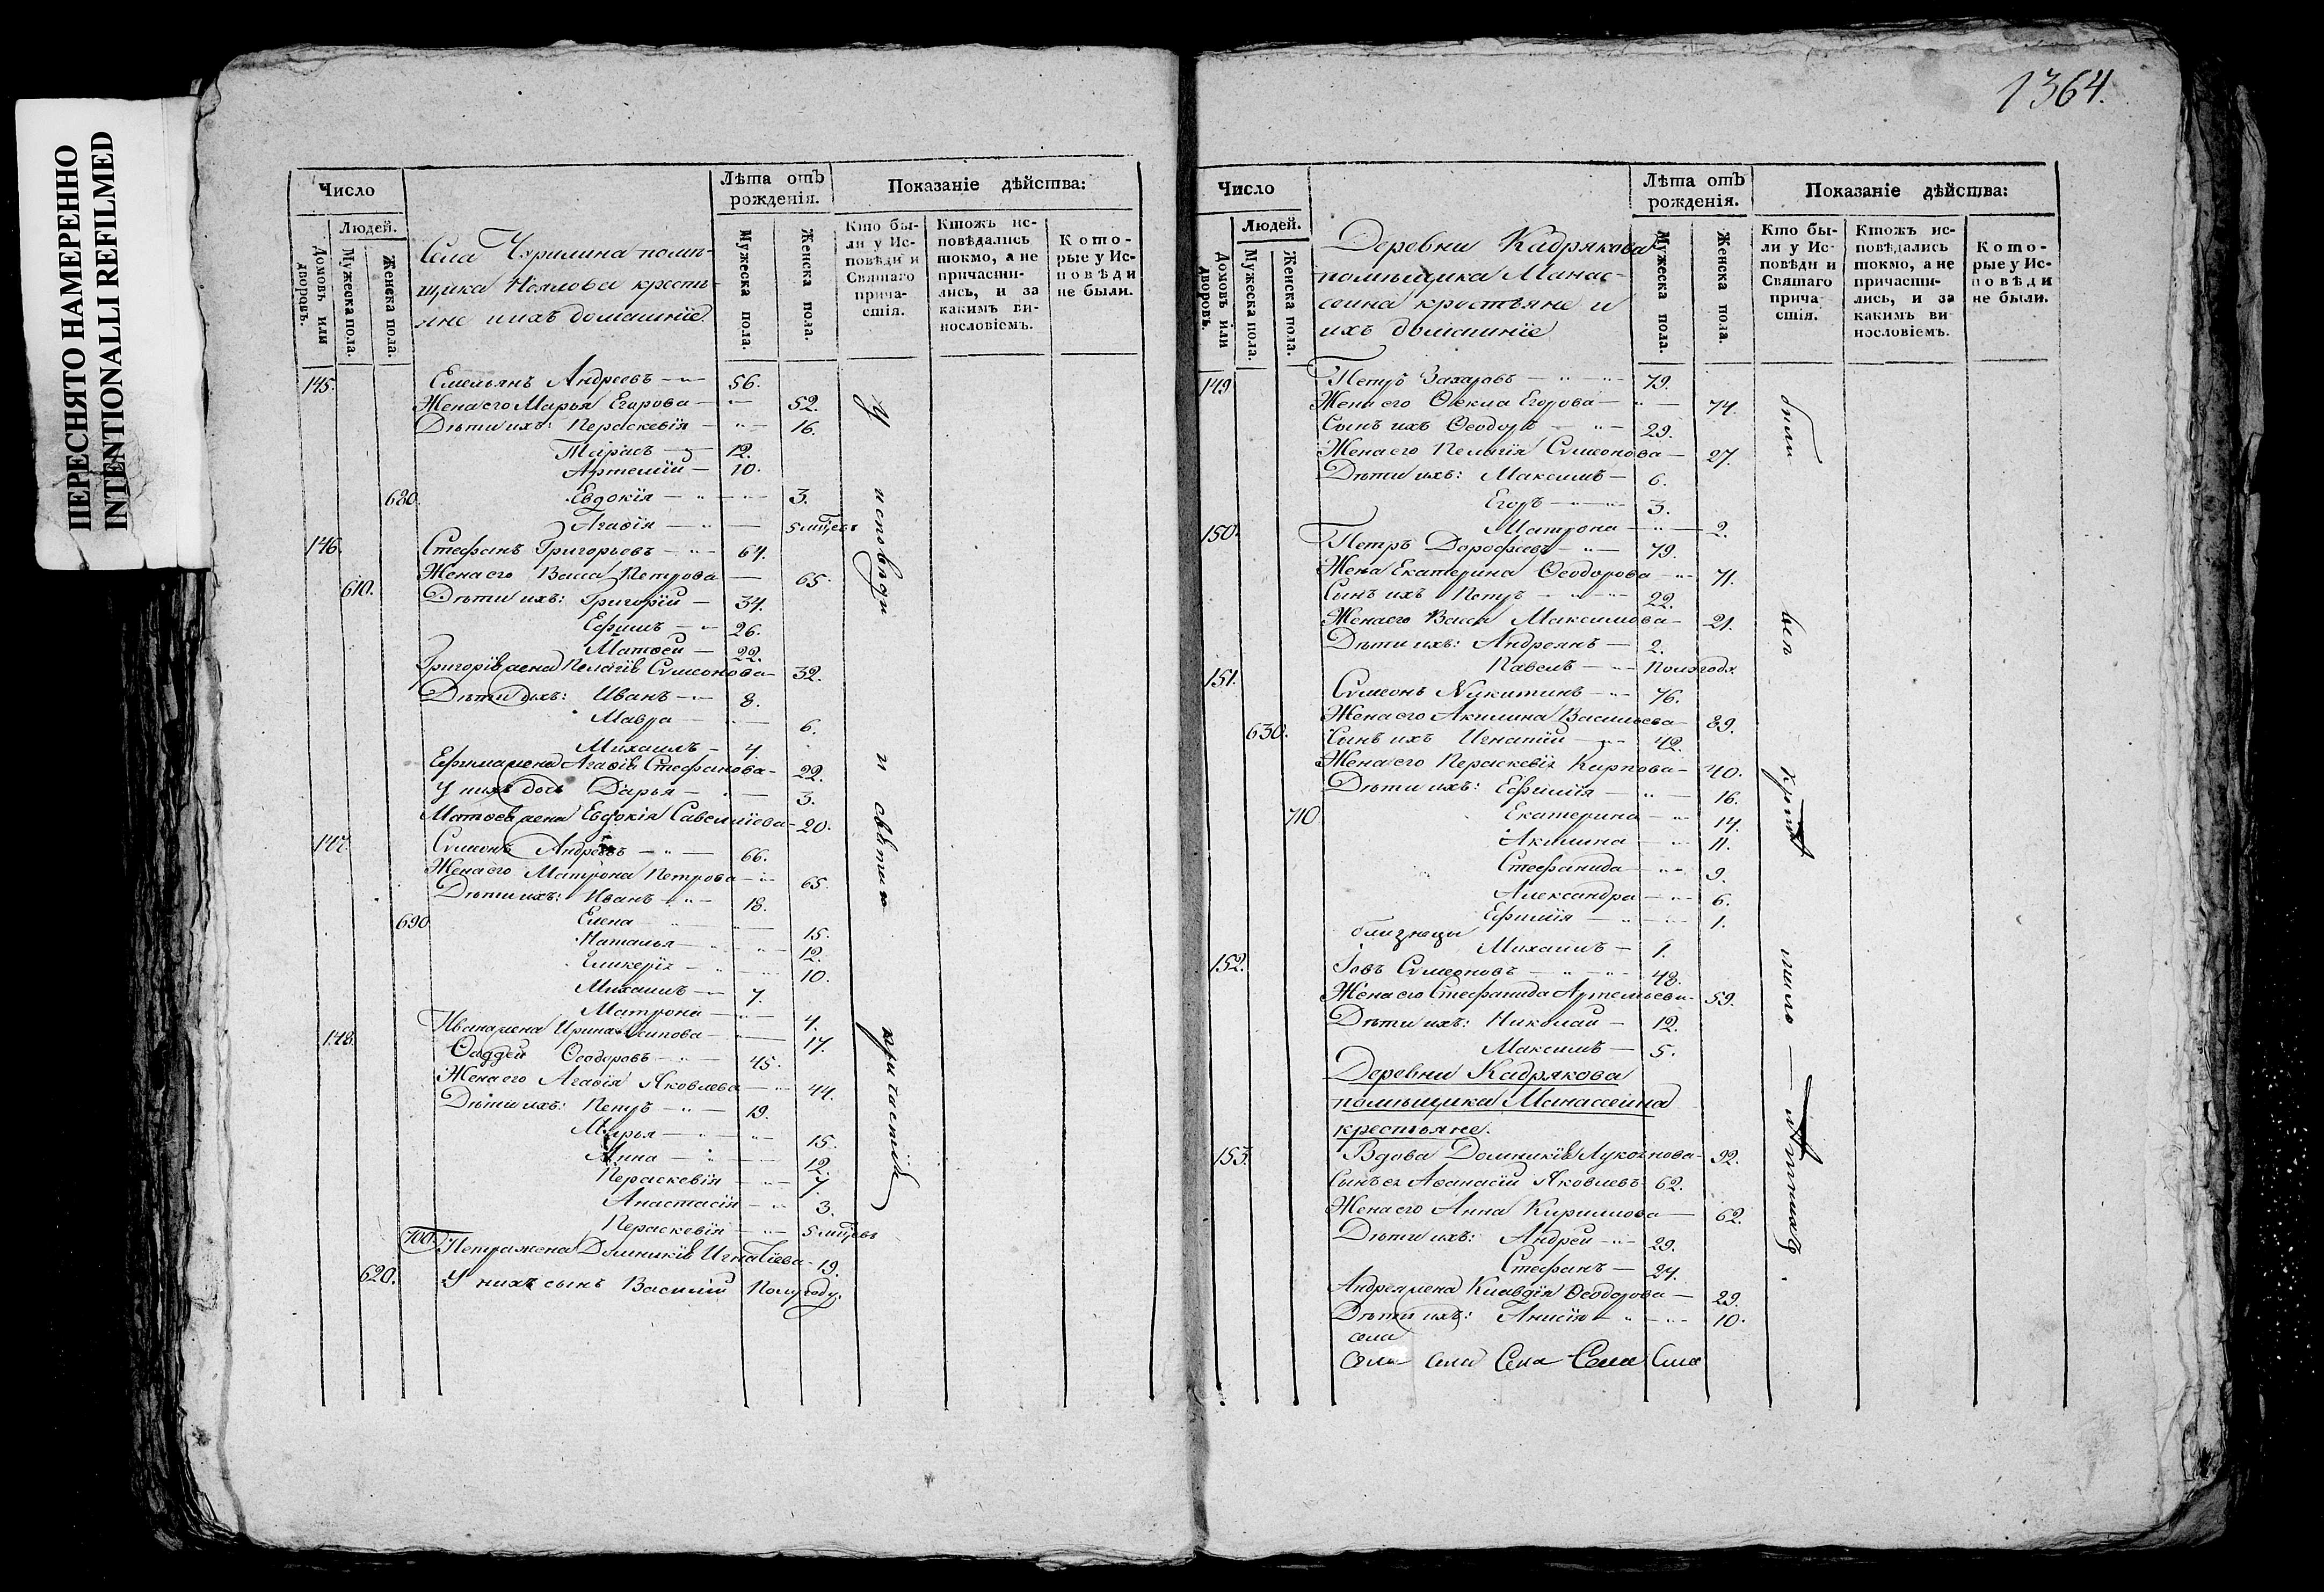 ПЕРЕСНЯТО НАМЕРЕННО
INTENTIONALLI REFILMED
1364.
Число
Людей.
Домовъ или дворовъ.
Мужеска пола.
Женска пола.
Села Чурилина помѣ-
щика Нѣелова кресть-
яне и ихъ домашніе.
Лѣта отъ рожденія.
Мужеска пола.
Женска пола.
Показаніе дѣйства:
Кто бы-
ли у Ис-
повѣди и
Святаго
прича-
стія.
Ктожъ ис-
повѣдались
токмо, а не
причасти-
лись, и за
какимъ ви-
нословіемъ.
Кото-
рые у Ис-
повѣди
не были.
145. Емельянъ Андреевъ — 56.
Жена его Марья Егорова — 52.
Дѣти ихъ: Пераскевія — 16.
Тарасъ — 12.
Артемій — 10.
680. Евдокія — 3.
Агафія — 5 мцевъ
146. Стефанъ Григорьевъ — 64.
Жена его Васса Петрова — 65.
610. Дѣти ихъ: Григорій — 34.
Ефимъ — 26.
Матѳей — 22.
Григорія жена Пелагія Сѵмеонова — 32.
Дѣти ихъ: Иванъ — 8.
Мавра — 6.
Михаилъ — 4.
Ефима жена Агафія Стефанова — 22.
У нихъ дочь Дарья — 3.
Матѳея жена Евдокія Савельіева — 20.
147. Сѵмеонъ Андреевъ — 66.
Жена его Матрона Петрова — 65.
Дѣти ихъ: Иванъ — 18.
690. Елена — 15.
Наталья — 12.
Гликерія — 10.
Михаилъ — 7.
Матрона — 4.
Ивана жена Ирина Осипова — 17.
148. Ѳаддей Ѳеодоровъ — 45.
Жена его Агафія Яковлева — 44.
Дѣти ихъ: Петръ — 19.
Марья — 15.
Анна — 12.
Пераскевія — 7.
Анастасія — 3.
Пераскевія — 5 мцевъ
700. Петра жена Домникія Игнатіева — 19.
620. У нихъ сынъ Василій Полугоду.
У исповѣди и святаго причастія
Число
Людей.
Домовъ или дворовъ.
Мужеска пола.
Женска пола.
Деревни Кадрякова
помѣщика Манас-
сеина крестьяне и
ихъ домашніе
Лѣта отъ рожденія.
Мужеска пола.
Женска пола.
Показаніе дѣйства:
Кто бы-
ли у Ис-
повѣди и
Святаго
прича-
стія.
Ктожъ ис-
повѣдались
токмо, а не
причасти-
лись, и за
какимъ ви-
нословіемъ.
Кото-
рые у Ис-
повѣди
не были.
149. Петръ Захаровъ — 79.
Жена его Ѳекла Егорова — 74.
Сынъ ихъ Ѳеодоръ — 29.
Жена его Пелагія Сѵмеонова — 27.
Дѣти ихъ: Максимъ — 6.
Егоръ — 3.
Матрона — 2.
150. Петръ Дорофеевъ — 79.
Жена Екатерина Ѳеодорова — 71.
Сынъ ихъ Петръ — 22.
Жена его Васса Максимова — 21.
Дѣти ихъ: Андреянъ — 2.
Павелъ — Полугода.
151. Сѵмеонъ Никитинъ — 76.
Жена его Акилина Васильева — 89.
630. Сынъ ихъ Игнатій — 42.
Жена его Пераскевія Карпова — 40.
Дѣти ихъ: Ефимія — 16.
710. Екатерина — 14.
Акилина — 11.
Стефанида — 9.
Александра — 6.
Ефимія — 1.
близнецы
Михаилъ — 1.
152. Іовъ Сѵмеоновъ — 48.
Жена его Стефанида Артемьева — 59.
Дѣти ихъ: Николай — 12.
Максимъ — 5.
Деревни Кадрякова
помѣщика Манассеина
крестьяне.
153. Вдова Домникія Лукоянова — 92.
Сынъ ея Аѳанасій Яковлевъ 62.
Жена его Анна Кирилова — 62.
Дѣти ихъ: Андрей — 29.
Стефанъ — 24.
Андрея жена Клавдія Ѳеодорова — 29.
Дѣти ихъ: Анисія — 10.
села
села села Села Села Села
были всѣ кромѣ мало — лѣтнихъ.